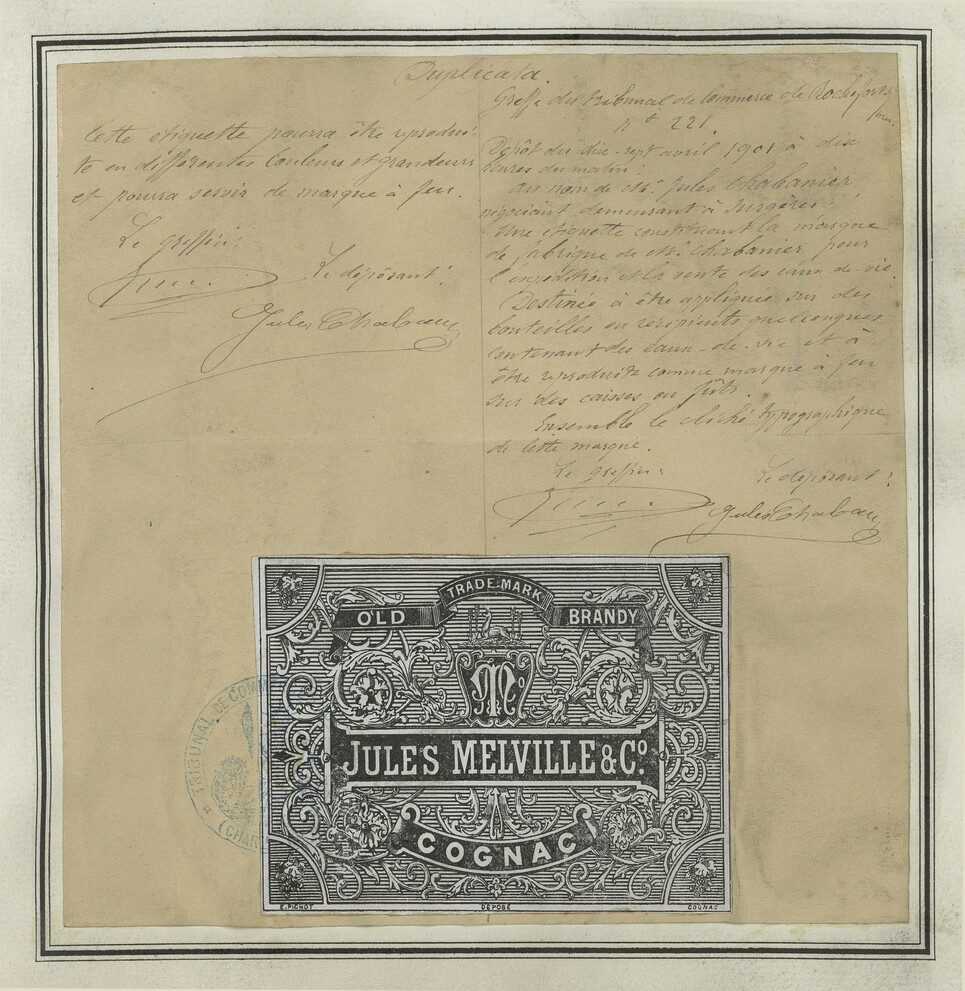 Duplicata.
Cette etiquette pourra être reprodui-
te en différentes Couleurs et grandeurs
et pourra servir de marque à feu.
Le greffier:
Le déposant:
Jules Chabanier
Greffe du tribunal de Commerce de Rochefort
n° 221.
Dépôt du dix-sept avril 1901 à dix
heures du matin.
au nom de Mr. Jules Chabanier
négociant demeurant à Surgères.
Une étiquette constituant la marque
de fabrique de Mr. Chabanier pour
l'expédition et la vente des eaux-de-vie.
Destinée à être appliquée sur des
bouteilles ou récipients quelconques
contenant des eaux-de-vie et à
être reproduite comme marque à feu
sur des caisses ou fûts.
Ensemble le cliché typographique
de cette marque.
Le greffier:
Le déposant:
Jules Chabanier
TRADE-MARK
OLD BRANDY
JULES MELVILLE & Co.
COGNAC
E. PICHOT DÉPOSÉ COGNAC
TRIBUNAL DE COMM
(CHAR